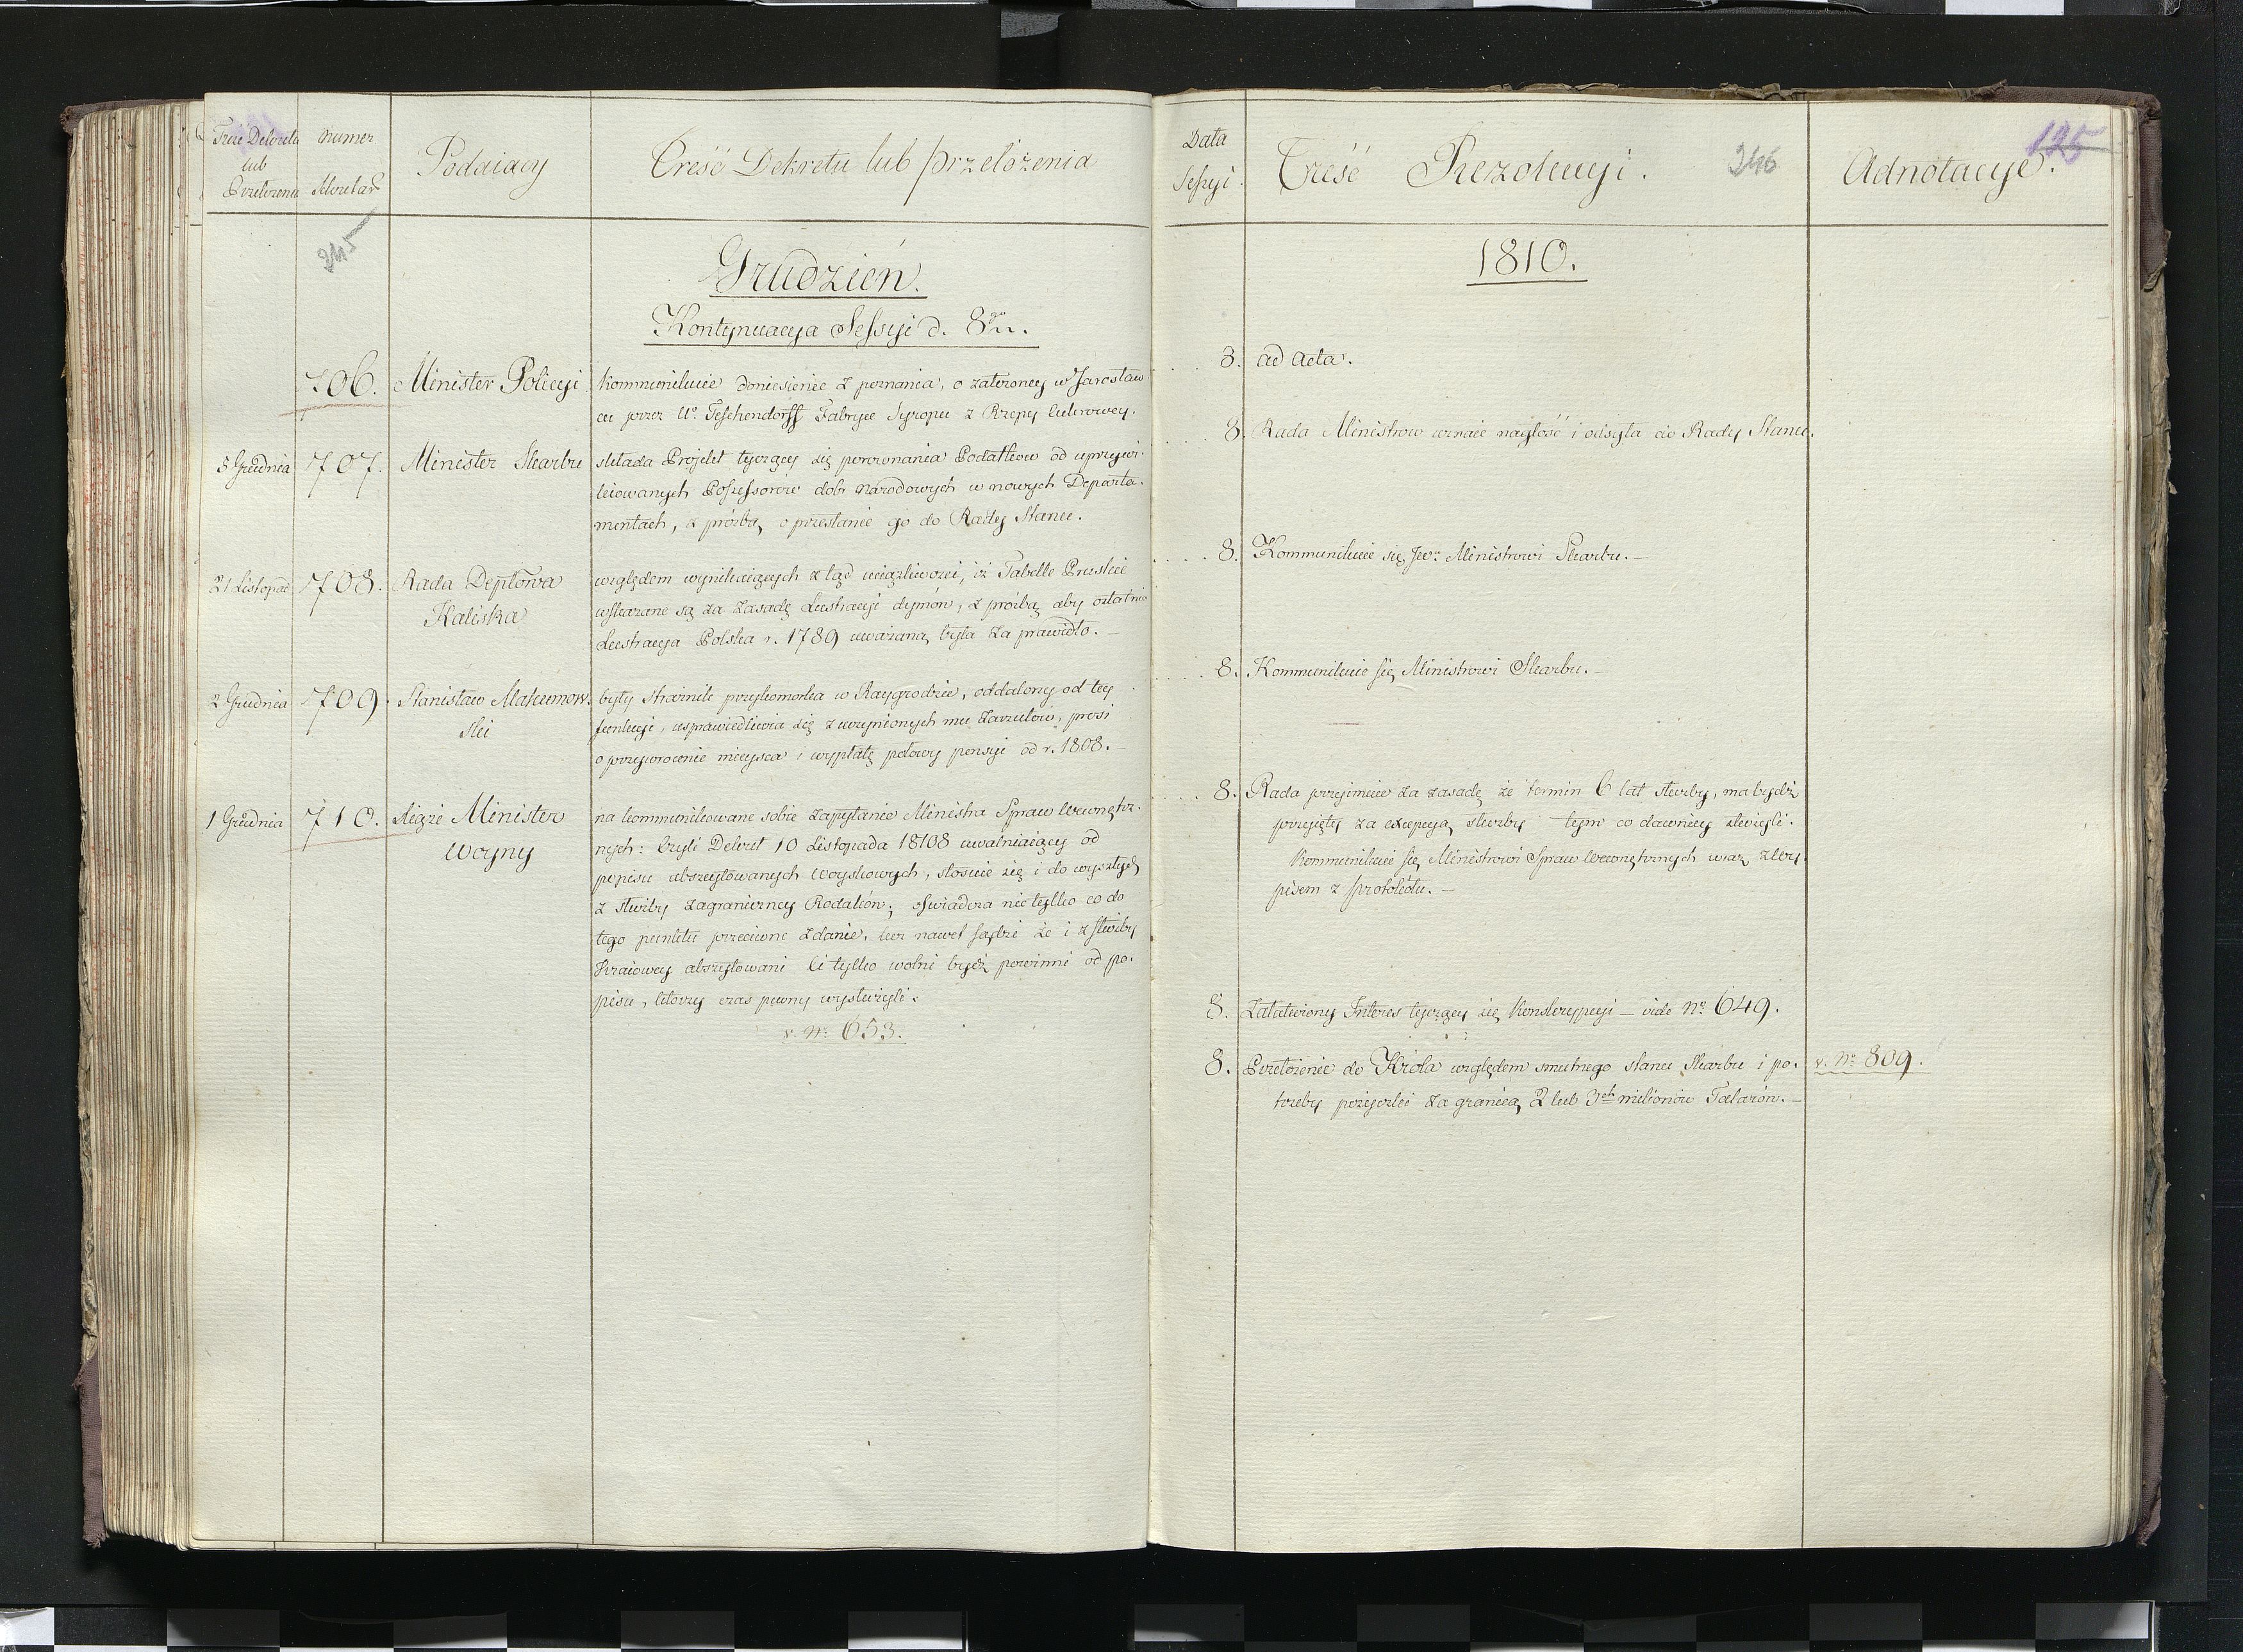 Treść Dekretu
lub
Przełożenia
Numer
Sekretar
Podaiący
Treść Dekretu lub przełożenia
245
Grudzień.
Kontynuacya Sessyi d. 8go
706. Minister Policyi
kommunikuie doniesienie z poznania, o założoney w Jarosław-
cu przez Uo. Teschendorff Fabryce Syropu z Rzepy Cukrowey.
5 Grudnia 707. Minister Skarbu
składa Projekt tyczący się porownania Podatkow od uprzywi-
leiowanych Possessorów dobr Narodowych w nowych Departa-
mentach, z prózbą o przesłanie go do Rady Stanu.
21 Listopad 708. Rada Deptowa
Kaliska
względem wynikaiących ztąd uciążliwości, iż Tabelle Pruskie
wskazane są za zasadę Lustracyi dymów, z próźbą aby ostatnia
Lustracya Polska r. 1789 uważaną była za prawidło.
2 Grudnia 709. Stanisław Makumow-
ski
były strażnik przykomorka w Raygrodzie, oddalony od tey
funkcyi, usprawiedliwia się z uczynionych mu zarzutow, prosi
o przywrocenie mieysca i wypłatę połowy pensyi od r. 1808.
1 Grudnia 710. Xiążę Minister
Woyny
na kommunikowane sobie zapytanie Ministra Spraw Wewnętrz-
nych: czyli Dekret 10 Listopada 18108 uwalniaiący od
popisu abszytowanych Woyskowych, stosuie się i do wyszłych
z służby zagraniczney Rodaków; oświadcza nietylko co do
tego punktu przeciwne zdanie, lecz nawet sądzi że i z służby
Kraiowey abszytowani ci tylko wolni bydź powinni od po-
pisu, którzy czas pewny wysłużyli.
v. No. 653.
Data
Sessyi.
Treść Rezolucyi.
246
Adnotacye.
125
1810.
8. ad acta.
8. Rada Ministrow uznaie nagłość i odsyła do Rady Stanu.
8. Kommunikuie się JW. Ministrowi Skarbu.
8. Kommunikuie się Ministrowi Skarbu.
8. Rada przyimuie za zasadę że termin 6 lat służby, ma bydź
przyięty za excepcyą służby tym co dawniey służyli.
Kommunikuie się Ministrowi Spraw Wewnętrznych wraz z Wy-
pisem z protokółu.
8. Załatwiony Interes tyczący się Konskrypcyi — vide No. 649.
8. Przełożenie do Króla względem smutnego stanu Skarbu i po-
trzeby pożyczki za granicą 2 lub 3ch milionów Talarów.
v. No. 809.